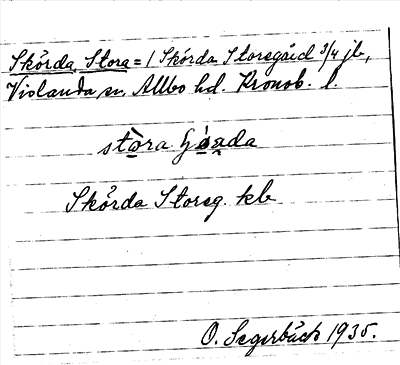 Skörda, Stora = 1 Skörda Storegård 3/4 jb,
Vislanda sn, Allbo hd. Kronob. l.
stora
Skörda Storeg. kb
O. Segerbäck 1935.